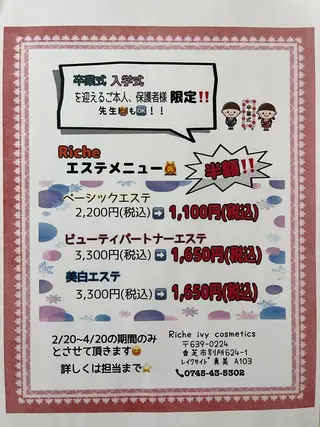 卒業式 入学式
を迎えるご本人、保護者様 限定‼️
先生もOK！！
Riche
エステメニュー
半額‼️
ベーシックエステ
2,200円(税込)➡️1,100円(税込)
ビューティパートナーエステ
3,300円(税込)➡️1,650円(税込)
美白エステ
3,300円(税込)➡️1,650円(税込)
2/20~4/20の期間のみ
とさせて頂します😊
詳しくは担当まで⭐
Riche ivy cosmetics
〒639-0224
香芝市別所624-1
レイクサイド真美 A103
📞0745-43-5302